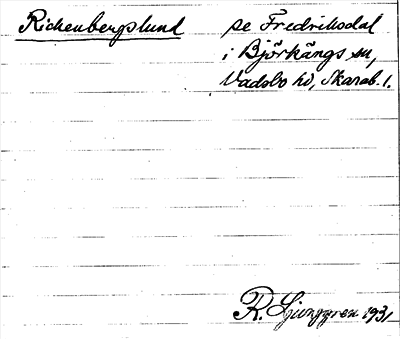 Richenbergslund se Fredriksdal
i Björkängs sn,
Vadsbo hd, Skarab. l.
R. Ljunggren 1931